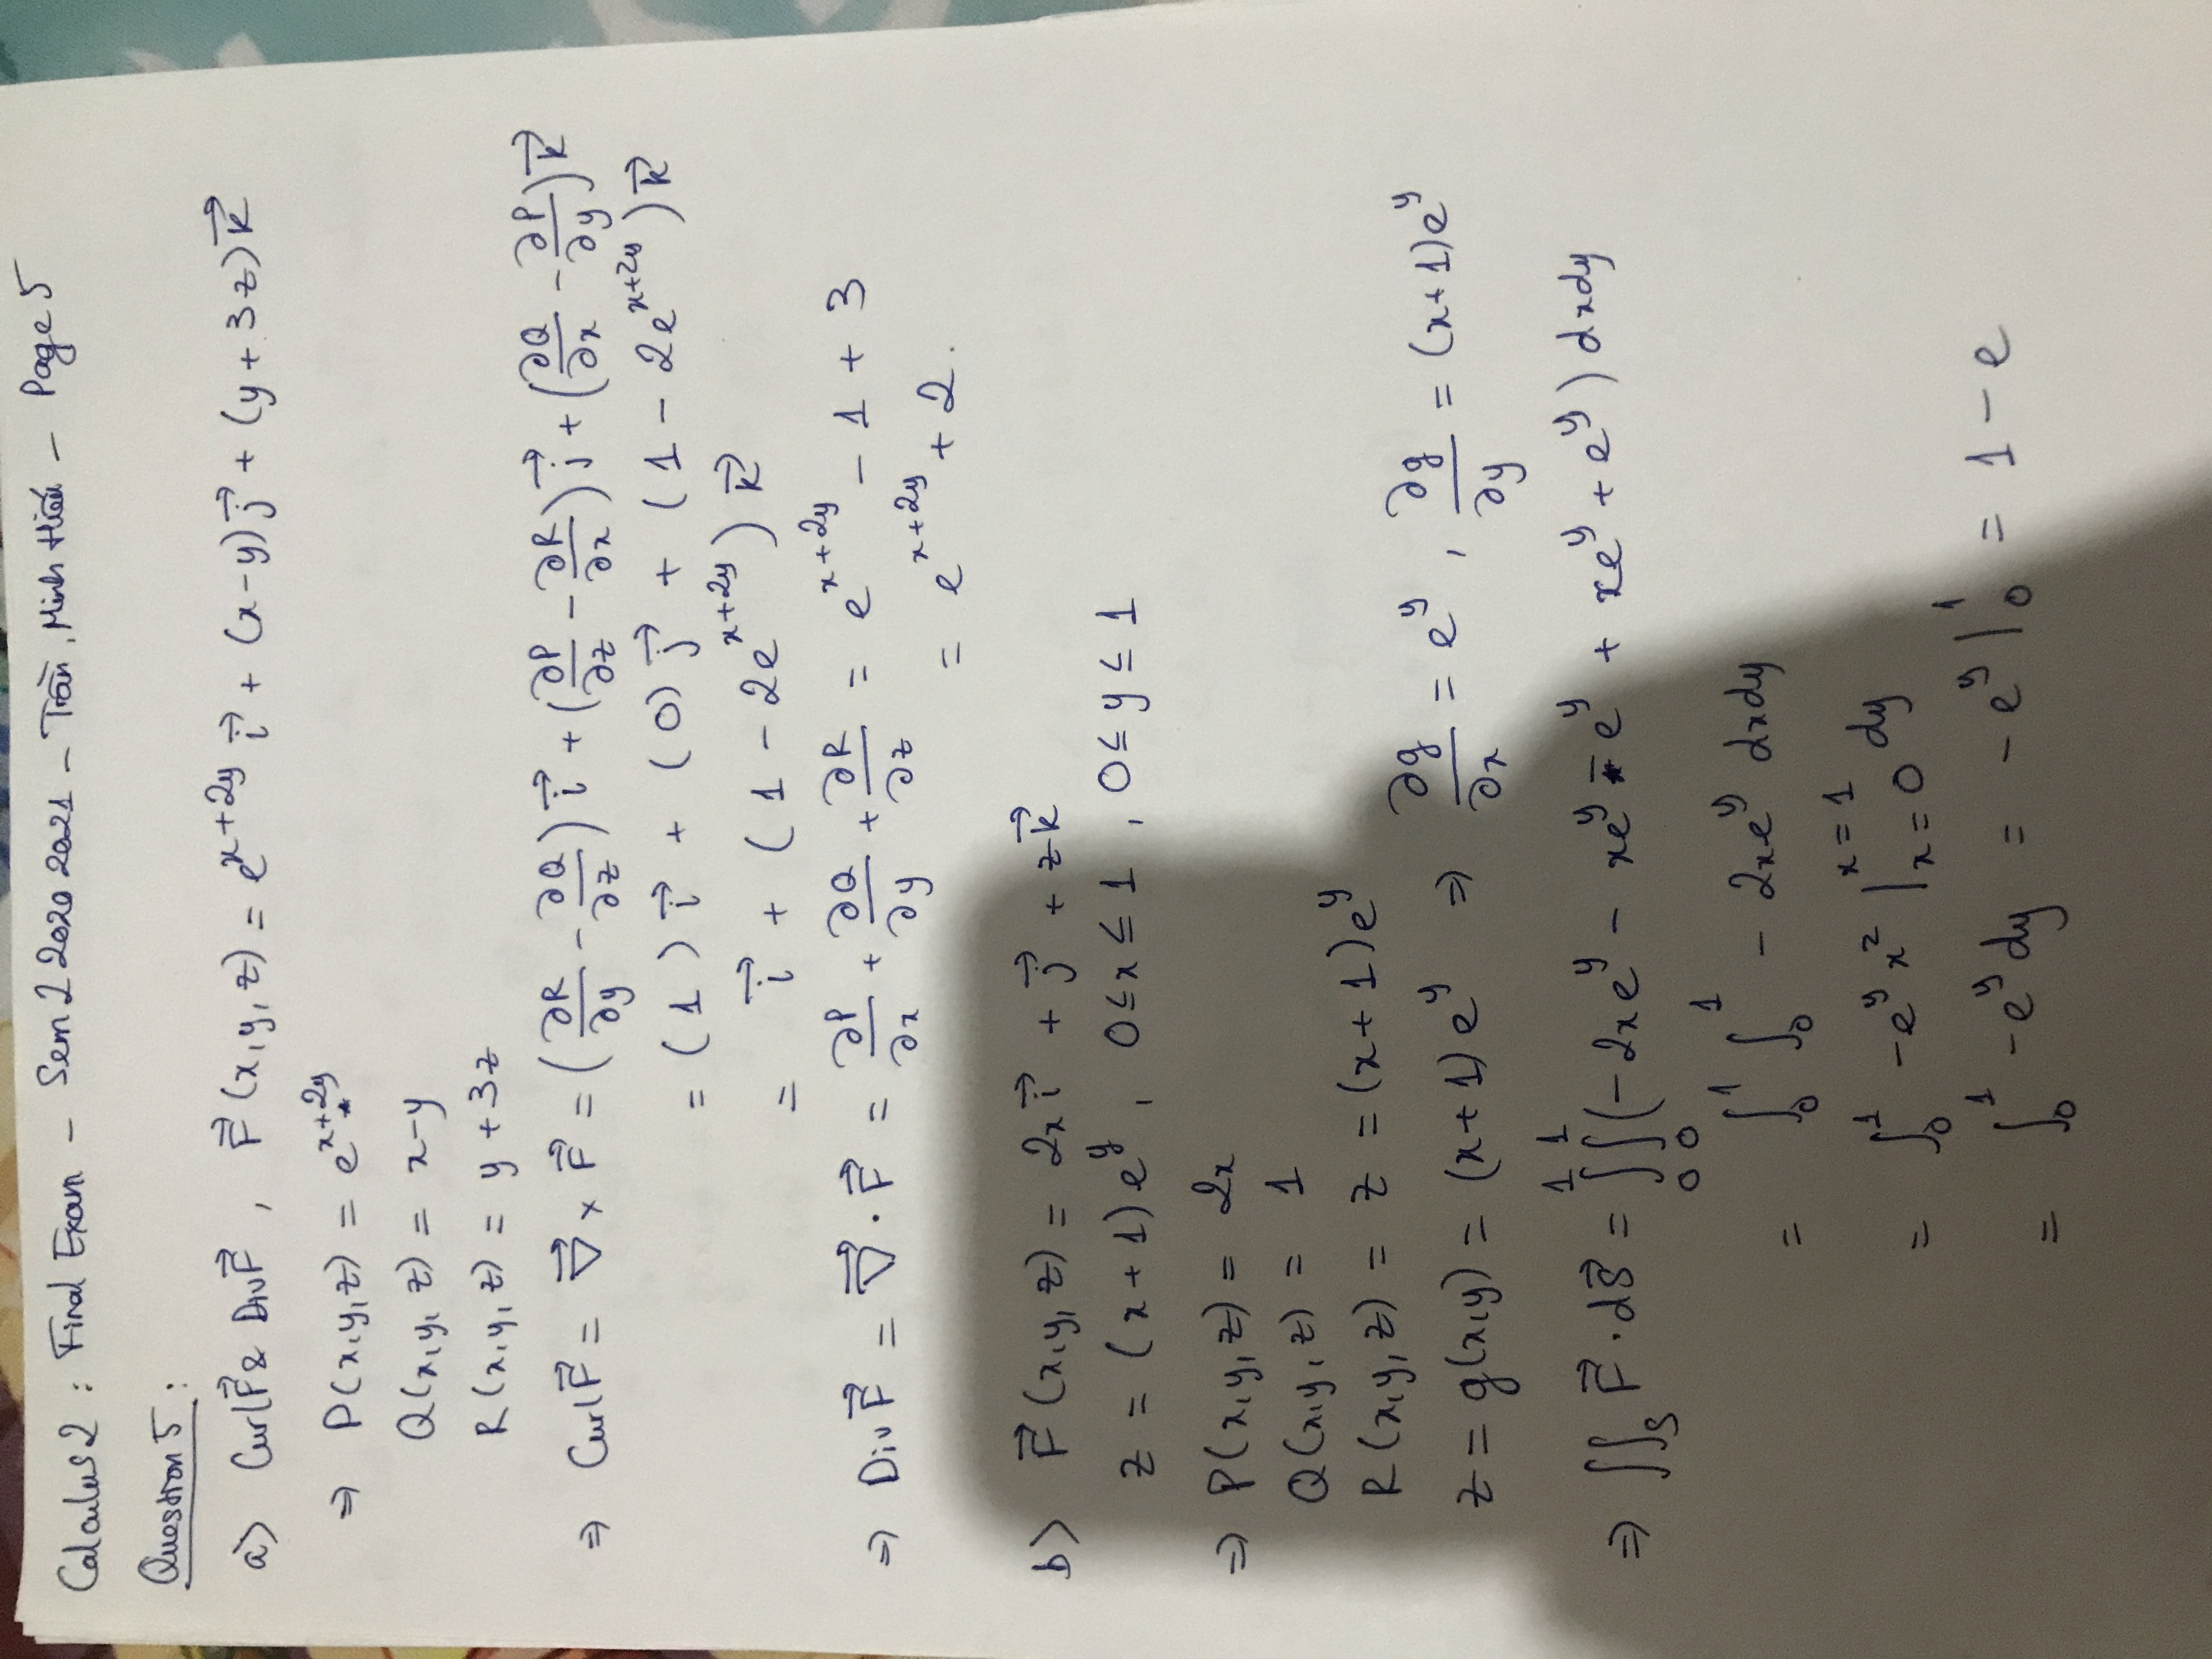 Calculus 2 : Final Exam – Sem 2 2020 2021 – Trần, Minh Hiếu – Page 5
Question 5 :
a) Curl F⃗ & Div F⃗ , F⃗ (x,y,z) = e^(x+2y) i⃗ + (x-y) j⃗ + (y + 3z) k⃗
⇒ P(x,y,z) = e^(x+2y)
Q(x,y,z) = x-y
R(x,y,z) = y + 3z
⇒ Curl F⃗ = ∇⃗ × F⃗ = (∂R/∂y - ∂Q/∂z) i⃗ + (∂P/∂z - ∂R/∂x) j⃗ + (∂Q/∂x - ∂P/∂y) k⃗
= (1) i⃗ + (0) j⃗ + (1 - 2e^(x+2y)) k⃗
= i⃗ + (1 - 2e^(x+2y)) k⃗
⇒ Div F⃗ = ∇⃗ · F⃗ = ∂P/∂x + ∂Q/∂y + ∂R/∂z = e^(x+2y) - 1 + 3
= e^(x+2y) + 2.
b) F⃗ (x,y,z) = 2x i⃗ + j⃗ + z k⃗
z = (x+1) e^y , 0 ≤ x ≤ 1 , 0 ≤ y ≤ 1
⇒ P(x,y,z) = 2x
Q(x,y,z) = 1
R(x,y,z) = z = (x+1)e^y
z = g(x,y) = (x+1) e^y ⇒ ∂g/∂x = e^y , ∂g/∂y = (x+1)e^y
⇒ ∬_S F⃗ · dS⃗ = ∫_0^1 ∫_0^1 (-2xe^y - xe^y - e^y + xe^y + e^y) dxdy
= ∫_0^1 ∫_0^1 - 2xe^y dxdy
= ∫_0^1 -e^y x^2 |_(x=0)^(x=1) dy
= ∫_0^1 -e^y dy = -e^y |_0^1 = 1 - e